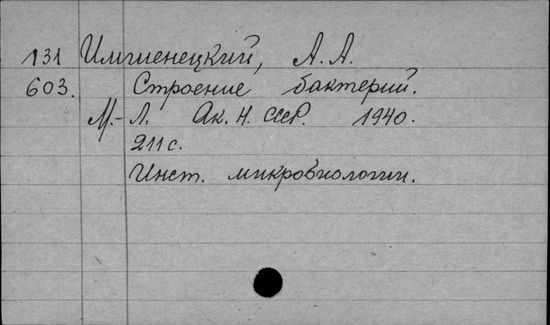 131 Имшенецкий, А. А.
603. Строение бактерий.
М.-Л. Ак. Н. СССР. 1940.
211 с.
Инст. микробиологии.